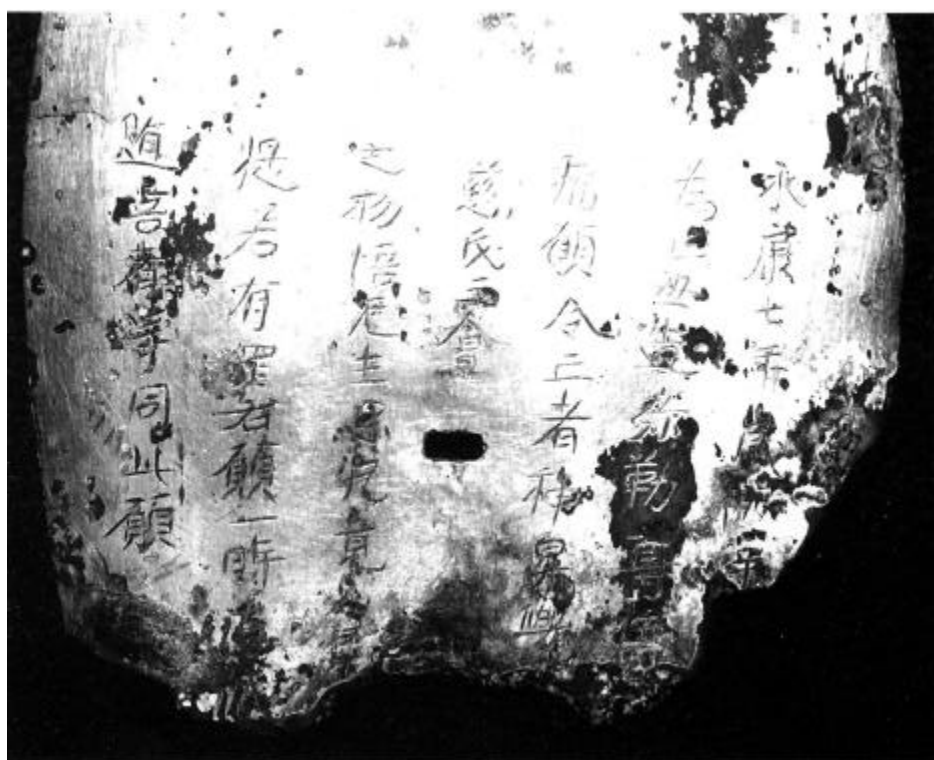 永康七年歲次
為亡母造弥勒尊像
福願令亡者神昇兜
慈氏三會
之初悟无生忍究竟
提若有罪右願一時
随喜者等同此願